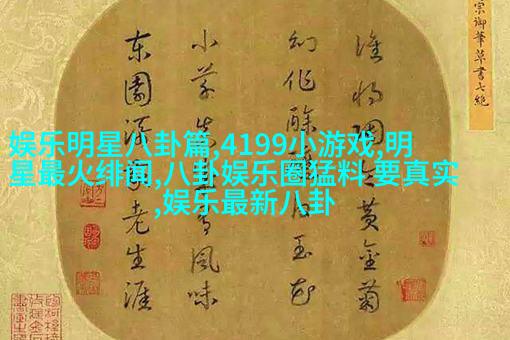 娱乐明星八卦篇,4199小游戏,明
星最火绯闻,八卦娱乐圈猛料 要真实
,娱乐最新八卦
宗御筆草書七絕
誰將陶令黃金菊
幻作酴白玉花
小草真風味
東園添老生涯